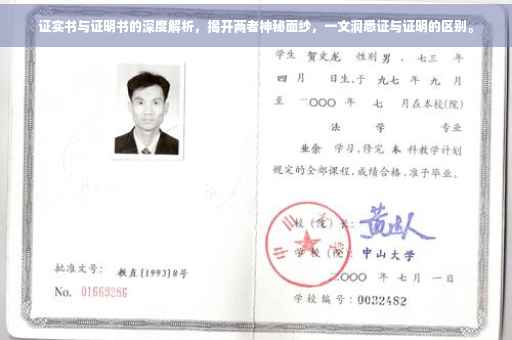 证实书与证明书的深度解析，揭开两者神秘面纱，一文洞悉证与证明的区别。
学生 贺文龙 性别 男 ，七三 年
四 月 日生，于 九七 年 九 月
至 二〇〇〇 年 七 月在本校(院)
法 学 专业
业余 学习，修完 本 科教学计划
规定的全部课程，成绩合格，准予毕业。
校（院）长：
学 校（院）：中山大学
二〇〇〇 年 七 月 一 日
学校编号：0032482
批准文号： 教直[1993]8号
No. 01669286